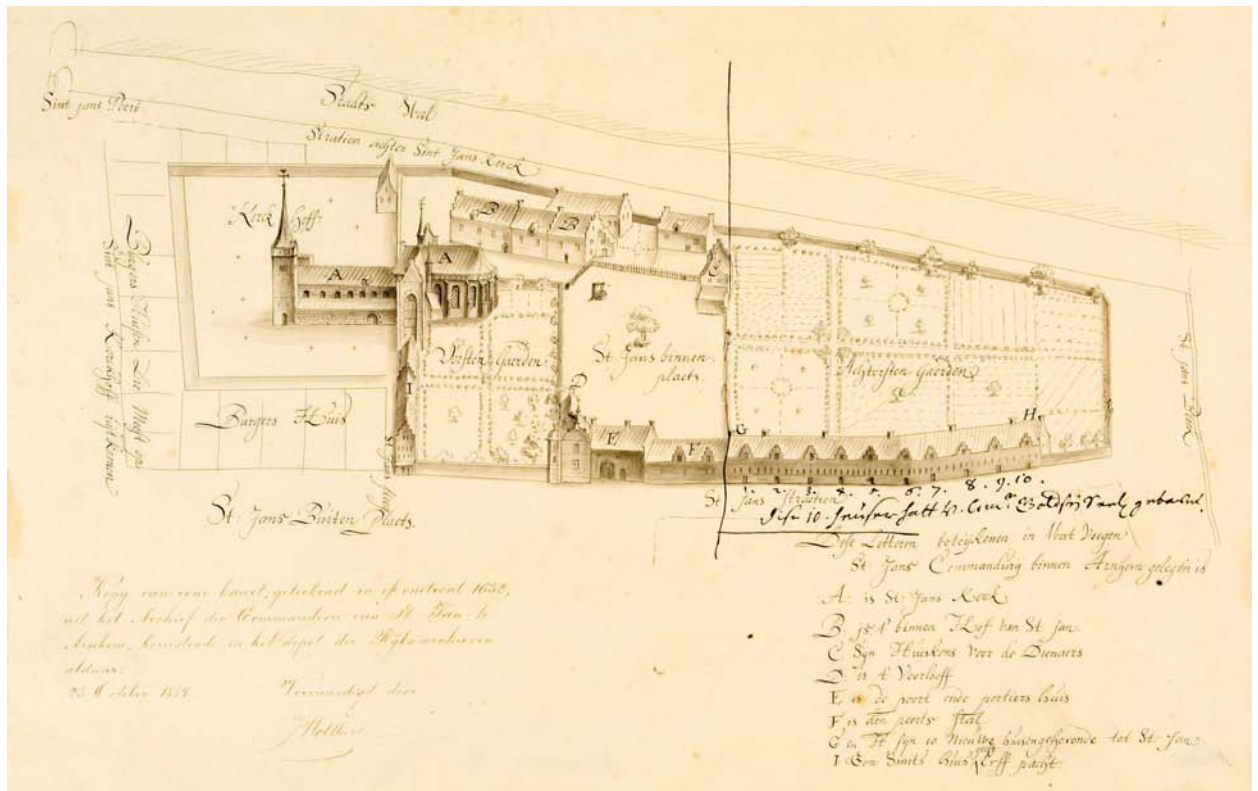 Stadts Wal
Sint jans Poort
Straeten achter Sint Jans Kerck
Kerck hoff
A
A
B
B
C
Burgers Huisen Die Mest op
Sint jans Kerckhoff uijtkomen
Vorsten Gaerden
St. Jans binnen
plaets
Achtersten Gaerden
D
I
E
F
G
H
Burgers Huis
St. Jans Buiten Plaets
St. Jans Straeten
1. 2. 3. 4. 5. 6. 7. 8. 9. 10.
Dise 10. heuser hatt
Dese Letteren beteijkenen in Wat Voegen
St. Jans Commandurij binnen Arnhem gelegen is
A is St. Jans Kerk
B js t' binnen Hof van St jan
C Syn Huiskens Voor de Dienaers
D is t' Voorhoff
E is de poort ende portiers huis
F is den peerts stal
G en H syn 10 Nieuwe huisen gehorende tot St. Jan
I Een Smits huis Erff pacht
Kopij van eene kaart, geteekend in of omstreeks 1652,
uit het Archief der Commanderie van St. Jan te
Arnhem, berustende in het depot der Rijksarchieven
aldaar.
23 October 1858 Vervaardigd door